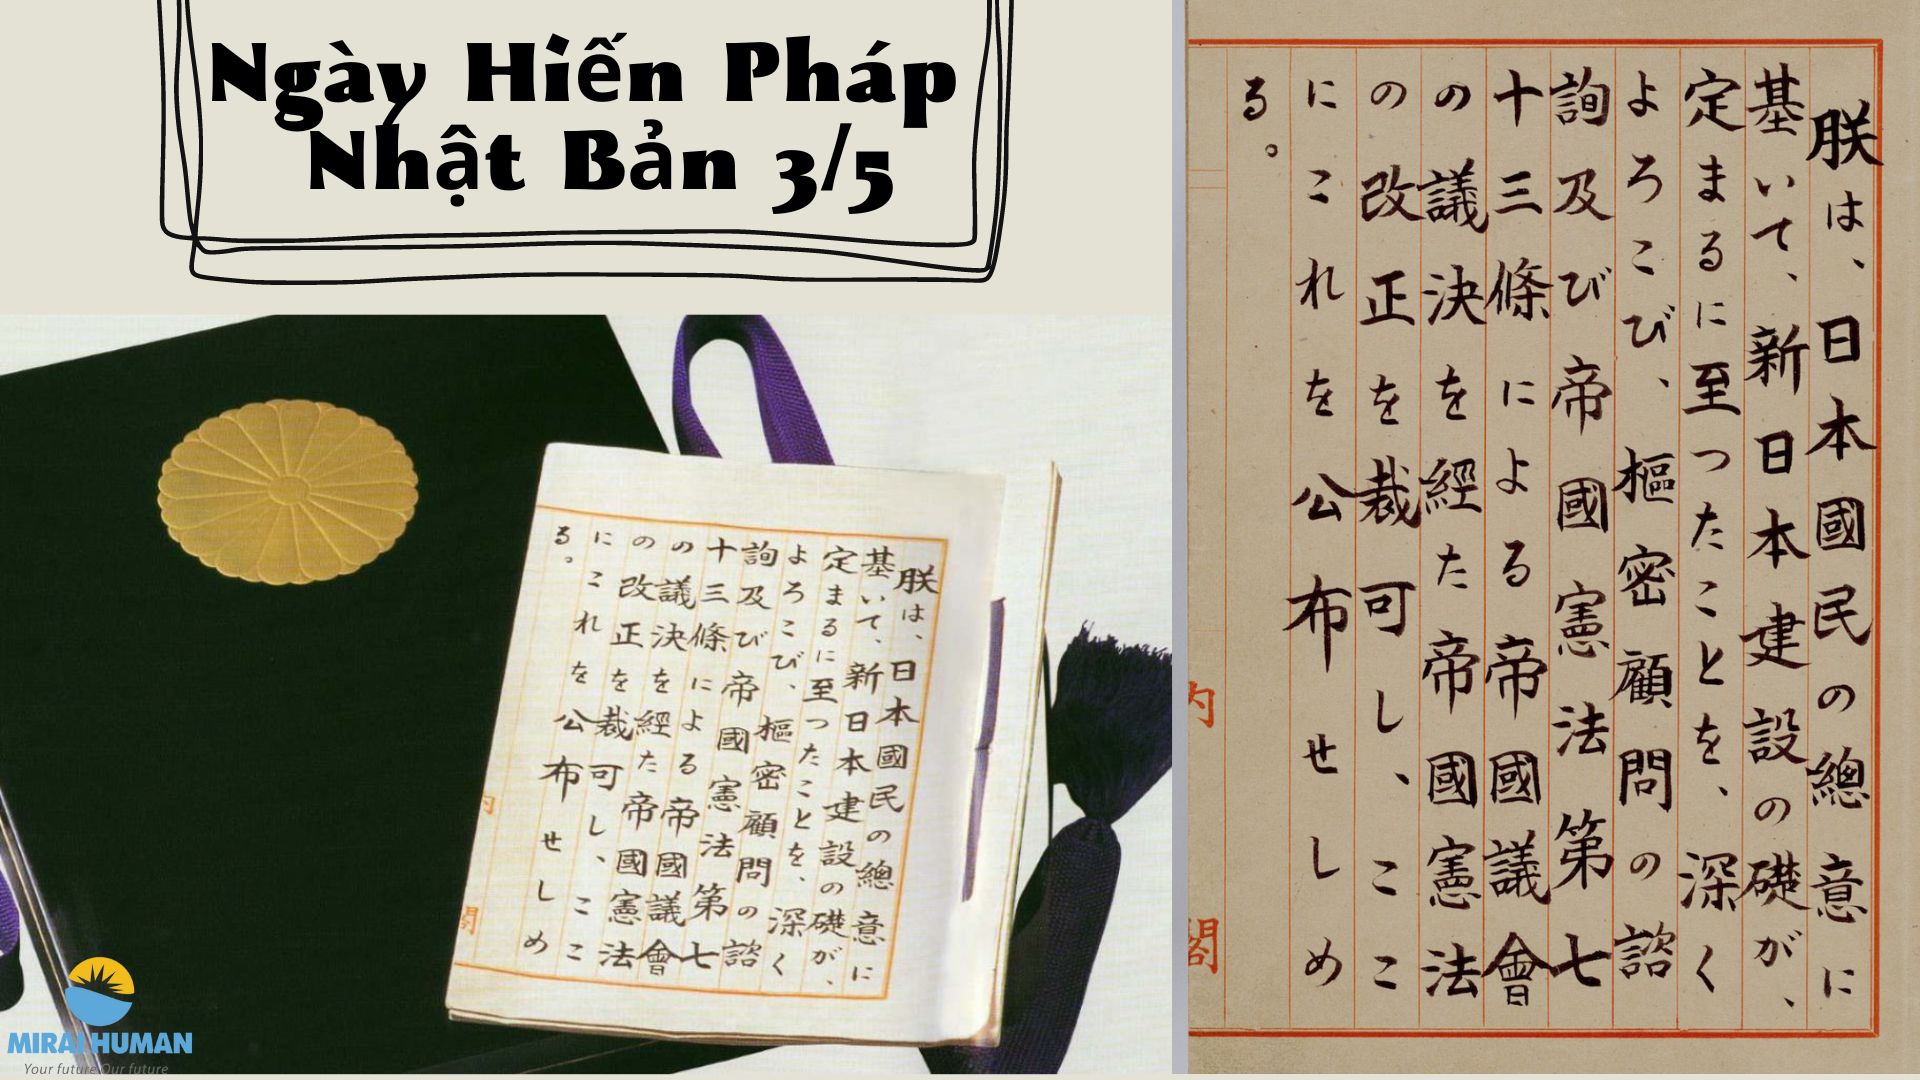 Ngày Hiến Pháp
Nhật Bản 3/5
朕は、日本國民の總意に
基いて、新日本建設の礎が、
定まるに至つたことを、深く
よろこび、樞密顧問の諮
詢及び帝國憲法第七
十三條による帝國議會
の議決を經た帝國憲法
の改正を裁可し、ここ
にこれを公布せしめ
る。
内閣
朕は、日本國民の總意に
基いて、新日本建設の礎が、
定まるに至つたことを、深く
よろこび、樞密顧問の諮
詢及び帝國憲法第七
十三條による帝國議會
の議決を經た帝國憲法
の改正を裁可し、ここ
にこれを公布せしめ
る。
内閣
MIRAI HUMAN
Your future Our future